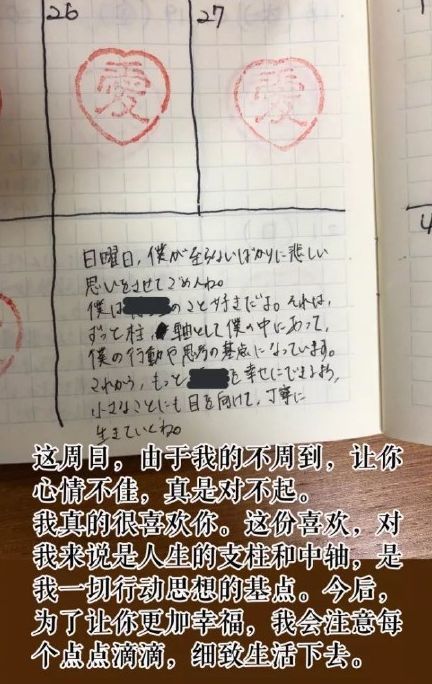 26
27
愛
愛
日曜日、僕が至らないばかりに悲しい
思いをさせてごめんね。
僕は
のこと好きだよ。それは、
ずっと柱、軸として僕の中にあって、
僕の行動や思考の基点になっています。
これから、もっと
を幸せにできるよう、
小さなことにも目を向けて、丁寧に
生きていくね。
这周日，由于我的不周到，让你
心情不佳，真是对不起。
我真的很喜欢你。这份喜欢，对
我来说是人生的支柱和中轴，是
我一切行动思想的基点。今后，
为了让你更加幸福，我会注意每
个点点滴滴，细致生活下去。